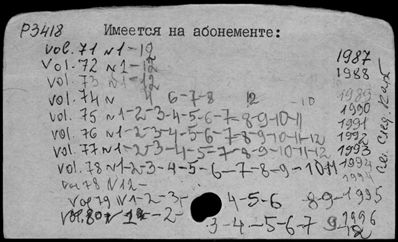 P3418 Имеется на абонементе:
vol. 71 N 1-12 1987
vol. 72 N 1-12 1988
vol. 73 N 1-12 1989
vol. 74 N 4 6-7-8 12 10 1990
vol. 75 N 1-2-3-4-5-6-7-8-9-10-11 1991
vol. 76 N 1-2-3-4-5-6-7-8-9-10-11-12 1992
vol. 77 N 1-2-3-4-5-7-8-9-10-11-12 1993
vol. 78 N 1-2-3-4-5-6-7-8-9-10 11 1994
vol 78 N 12- 1994
vol 79 N 1-2-3- 4-5-6 8-9-1995
vol. 80 N 1-2- 3-4-5-6-7 9- 1996
12